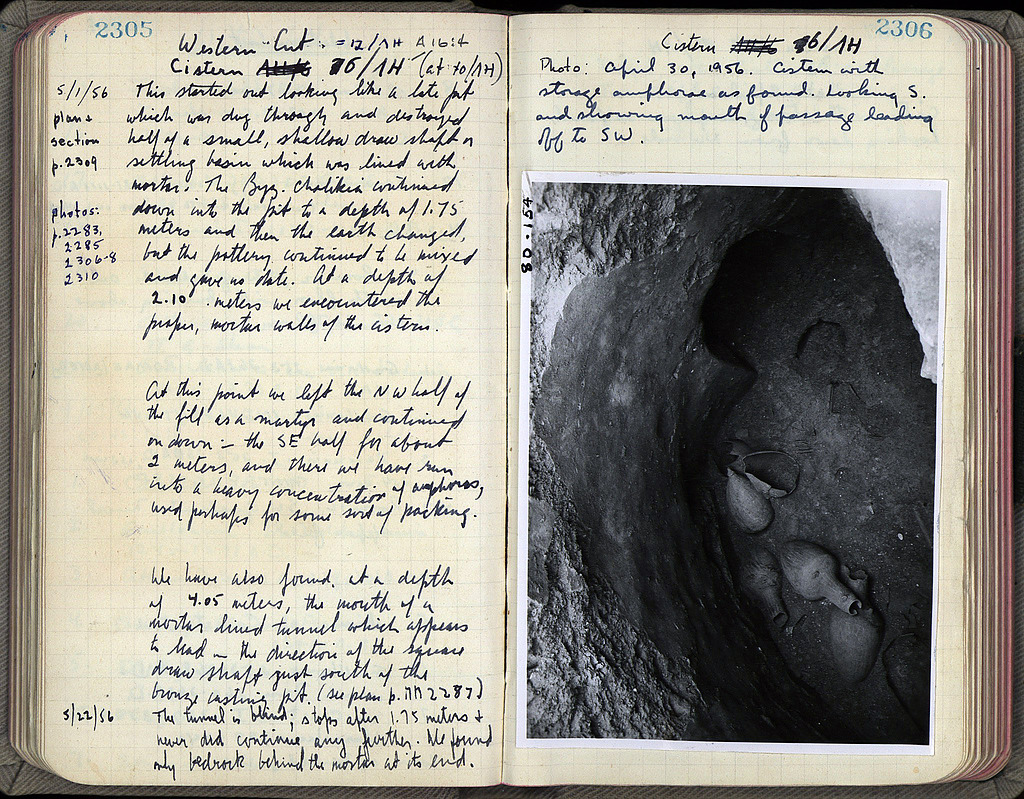 2305
Western Cut: = 12/ΛH A16:4
Cistern 76/ΛH (at 70/ΛH)
5/1/56
plan +
section
p. 2309
photos:
p. 2283,
2285
2306-8
2310
This started out looking like a late pit
which was dug through and destroyed
half of a small, shallow draw shaft or
settling basin which was lined with
mortar. The Byz. chalikia continued
down into the pit to a depth of 1.75
meters and then the earth changed,
but the pottery continued to be mixed
and gave no date. At a depth of
2.10 meters we encountered the
proper, mortar walls of the cistern.
At this point we left the NW half of
the fill as a martyr and continued
on down in the SE half for about
2 meters, and there we have run
into a heavy concentration of amphoras,
used perhaps for some sort of packing.
We have also found, at a depth
of 4.05 meters, the mouth of a
mortar lined tunnel which appears
to lead in the direction of the square
draw shaft just south of the
bronze casting pit. (see plan p. ΠΠ 2287)
5/22/56
The tunnel is blind; stops after 1.75 meters +
never did continue any further. We found
only bedrock behind the mortar at its end.
2306
Cistern 76/ΛH
Photo: April 30, 1956. Cistern with
storage amphorae as found. Looking S.
and showing mouth of passage leading
off to SW.
80.154